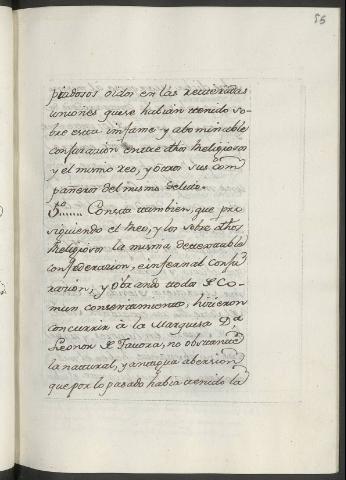 55
piadosos oidos en las reiteradas
uniones que se habian tenido so-
bre esta infame y abominable
conjurazion entre dhos Religiosos
y el mismo reo, y otros sus com
pañeros del mismo delito.
5º...... Consta tambien, que pro
siguiendo el Reo, y los sobre dhos
Religiosos la misma detestable
confederazion, e infernal conju
razion, y obrando todo de Co-
mun consentimiento, hizieron
concurrir à la Marquesa D.ª
Leonor de Tavora, no obstante
la natural, y antigua abersion
que por lo pasado habia tenido la